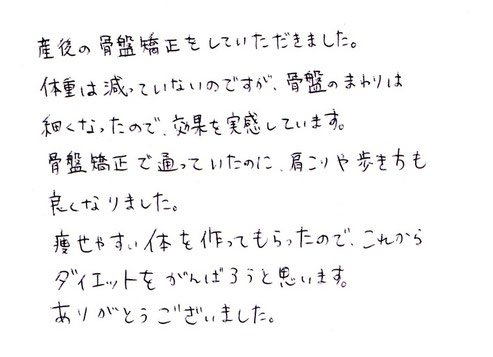 産後の骨盤矯正をしていただきました。
体重は減っていないのですが、骨盤のまわりは
細くなったので、効果を実感しています。
骨盤矯正で通っていたのに、肩こりや歩き方も
良くなりました。
痩せやすい体を作ってもらったので、これから
ダイエットをがんばろうと思います。
ありがとうございました。